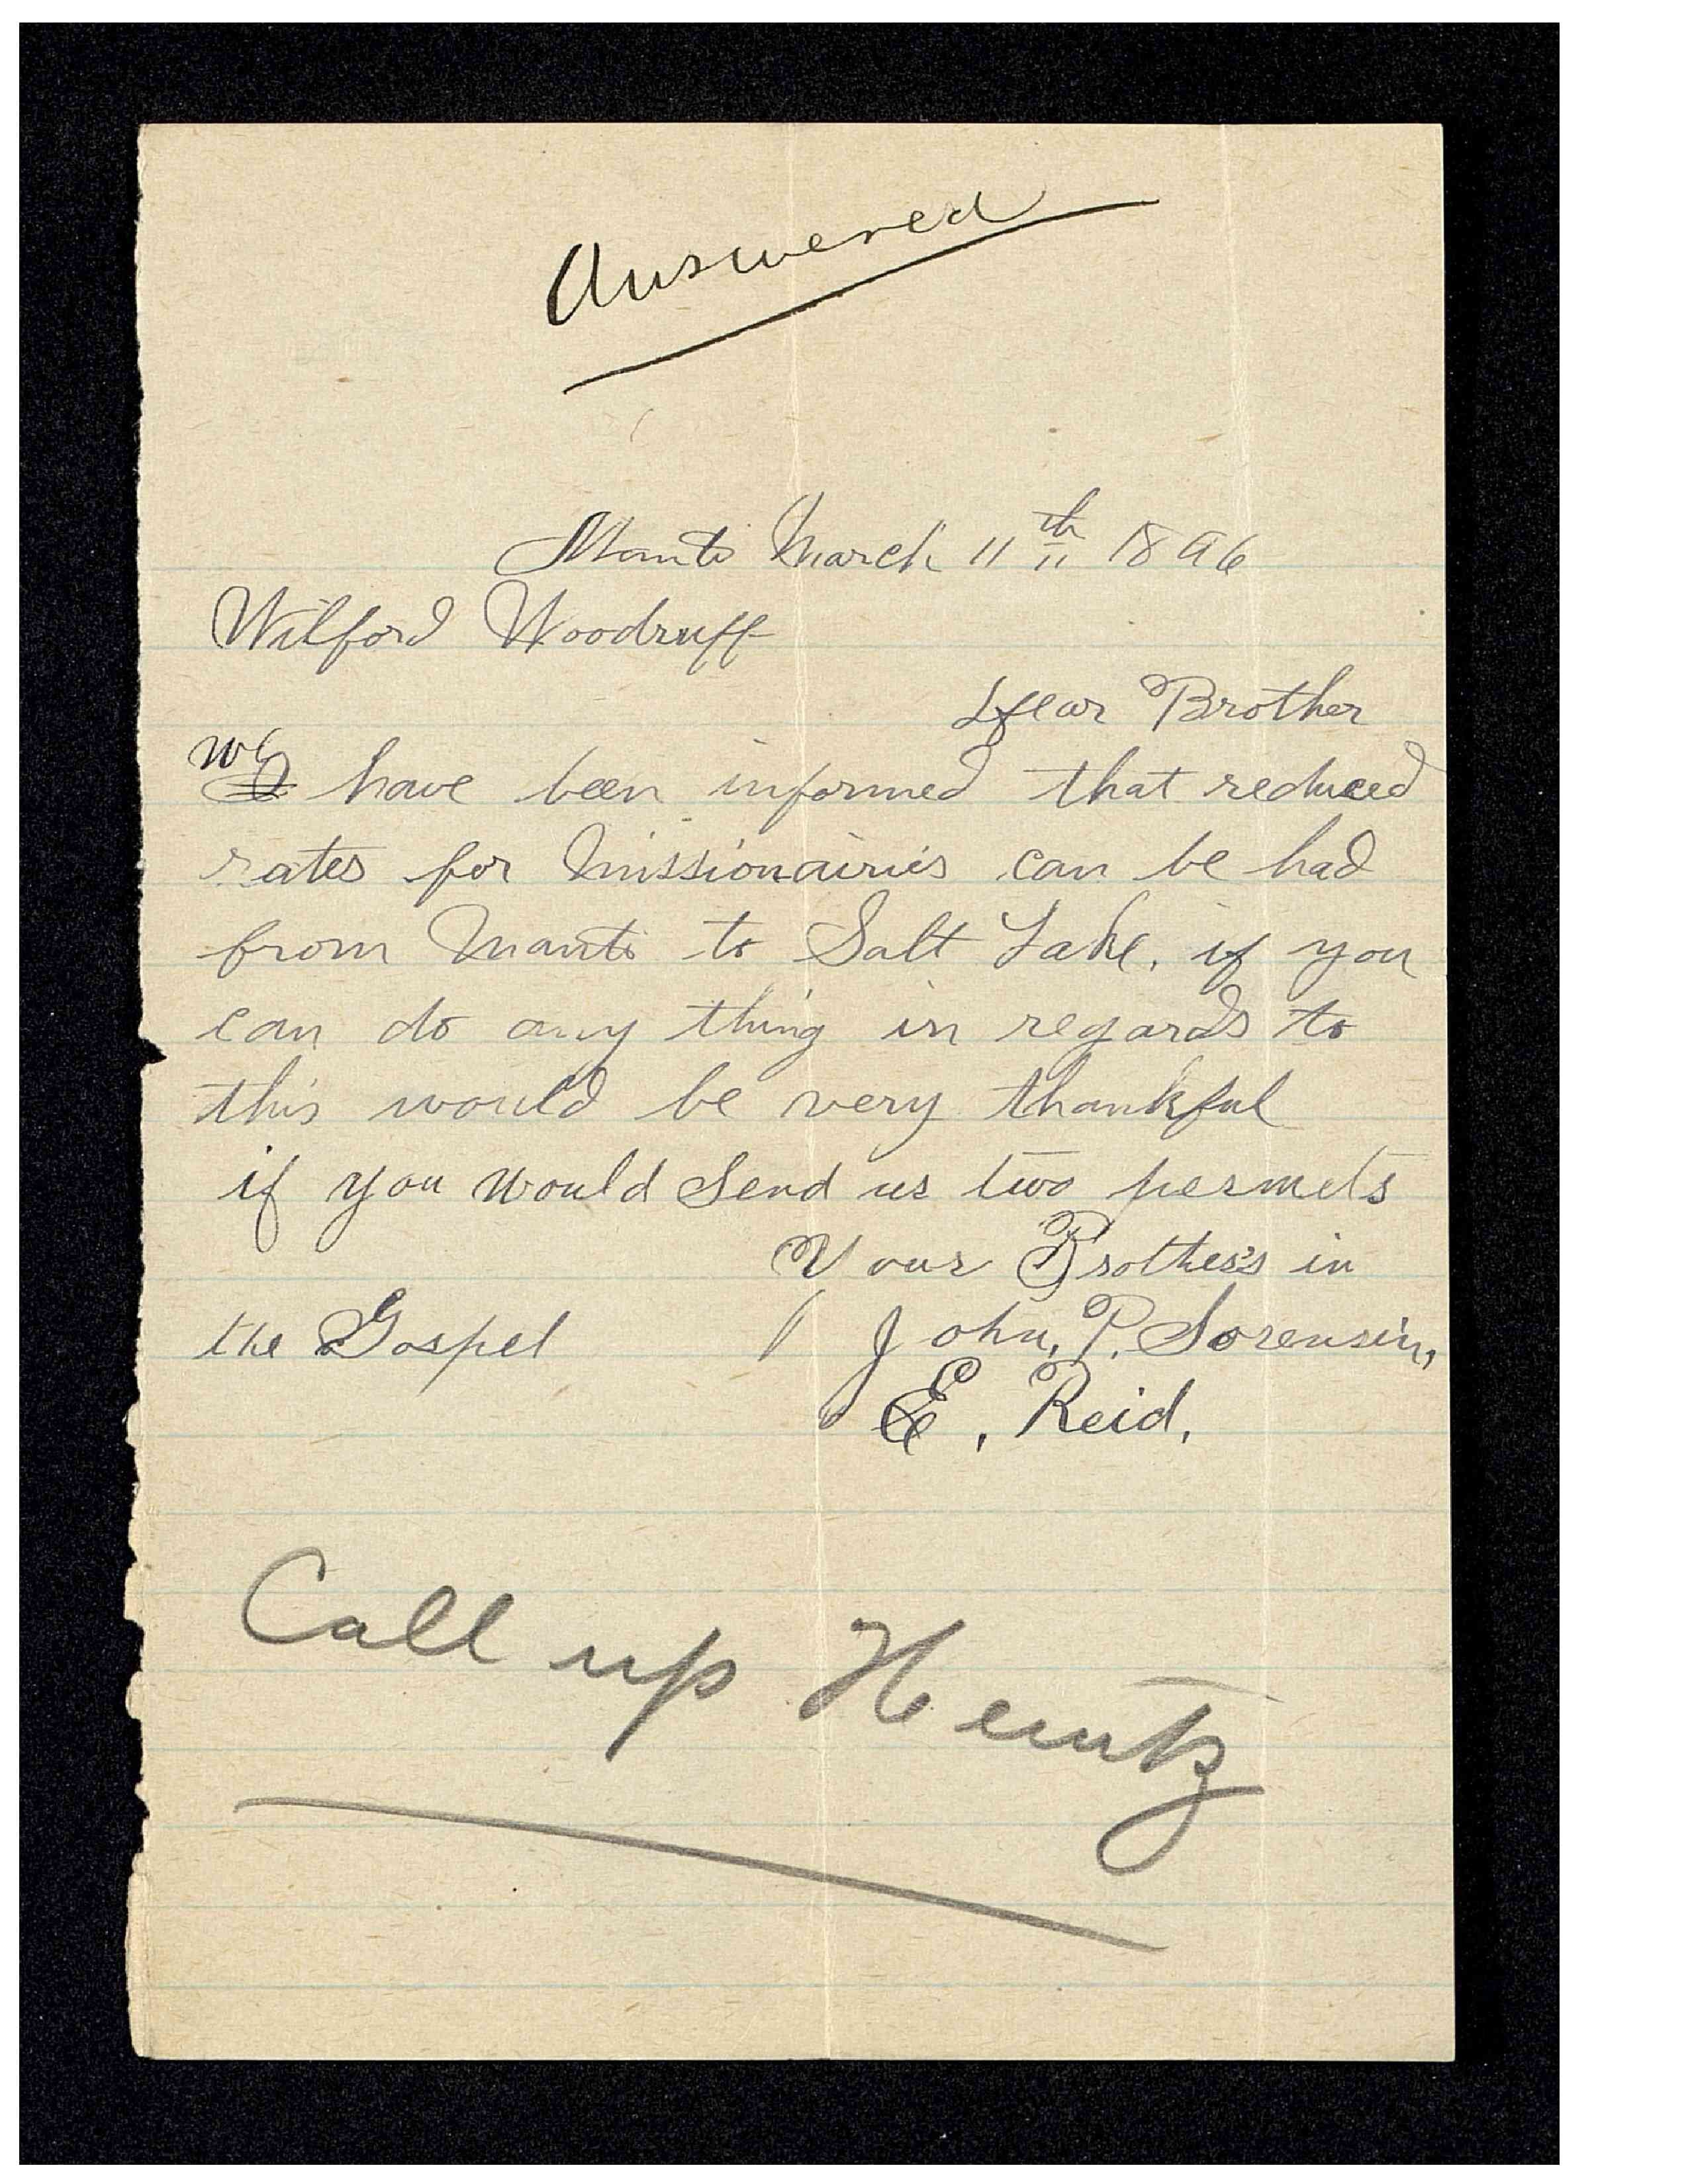 Answered
Manti March 11th 1896
Wilford Woodruff
Dear Brother
We have been informed that reduced
rates for Missionairies can be had
from Manti to Salt Lake, if you
can do any thing in regards to
this would be very thankful
if you would Send us two permets
Your Brothers in
the Gospel John, P. Sorensen,
E. Reid,
Call up Hentz